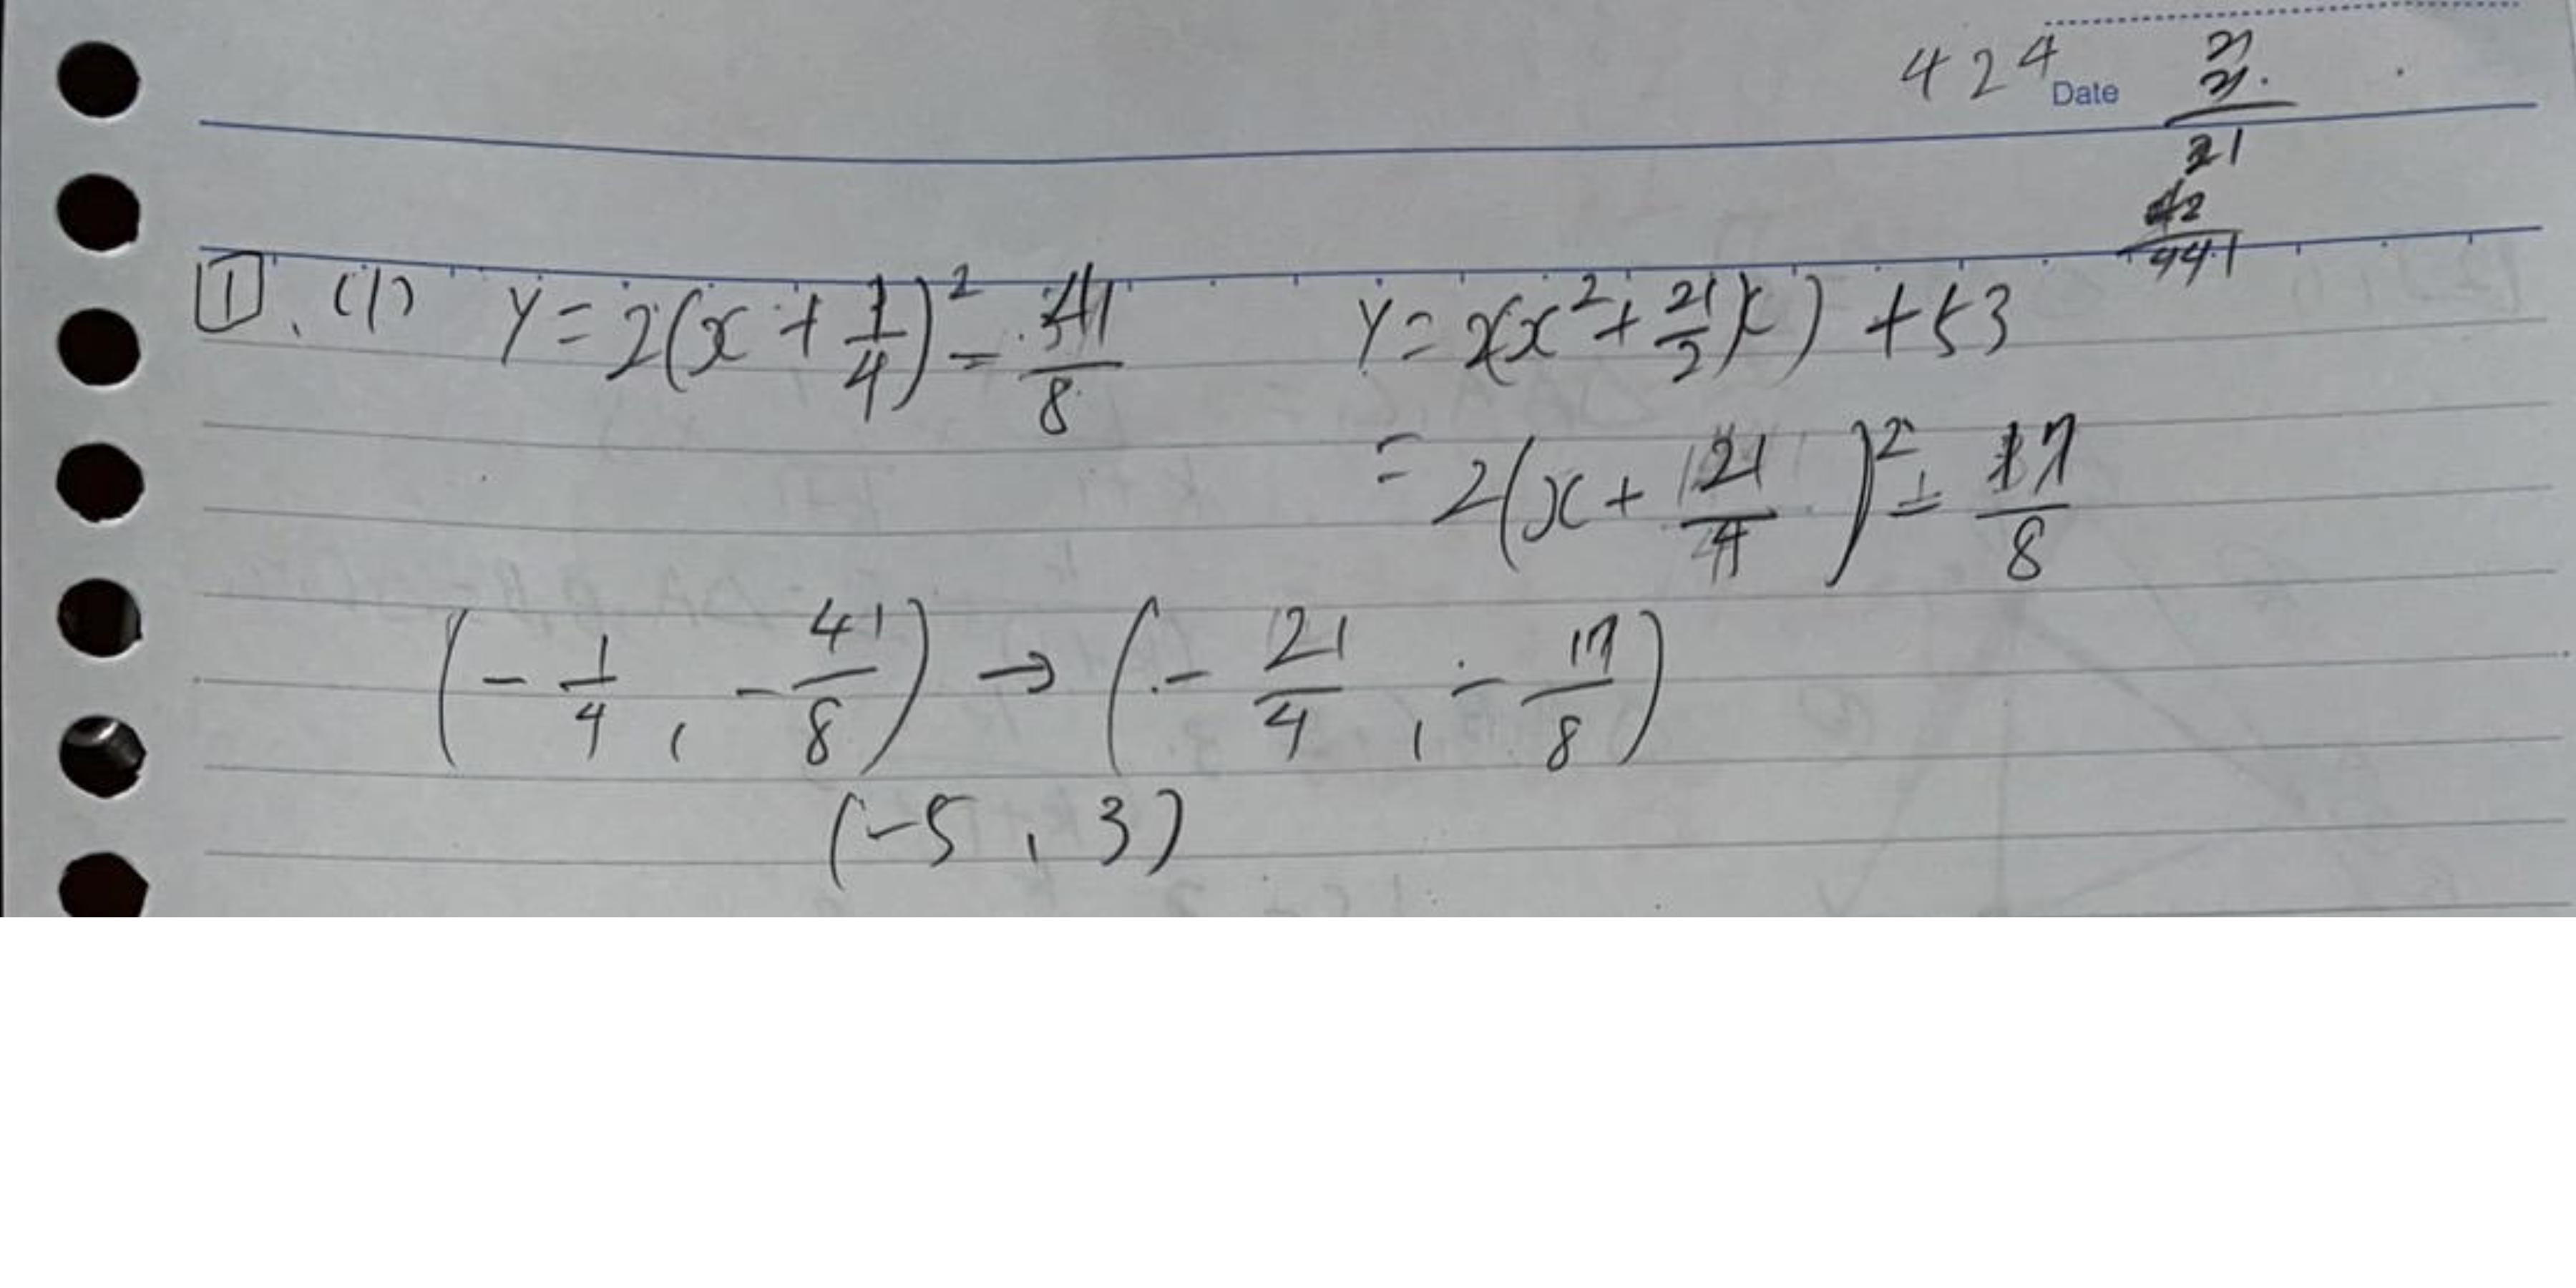 424 Date
21
21
21
42
441
1. (1) y = 2(x + 1/4)² - 41/8
y = 2(x² + 21/2 x) + 53
= 2(x + 21/4)² - 17/8
(-1/4, -41/8) → (-21/4, -17/8)
(-5, 3)